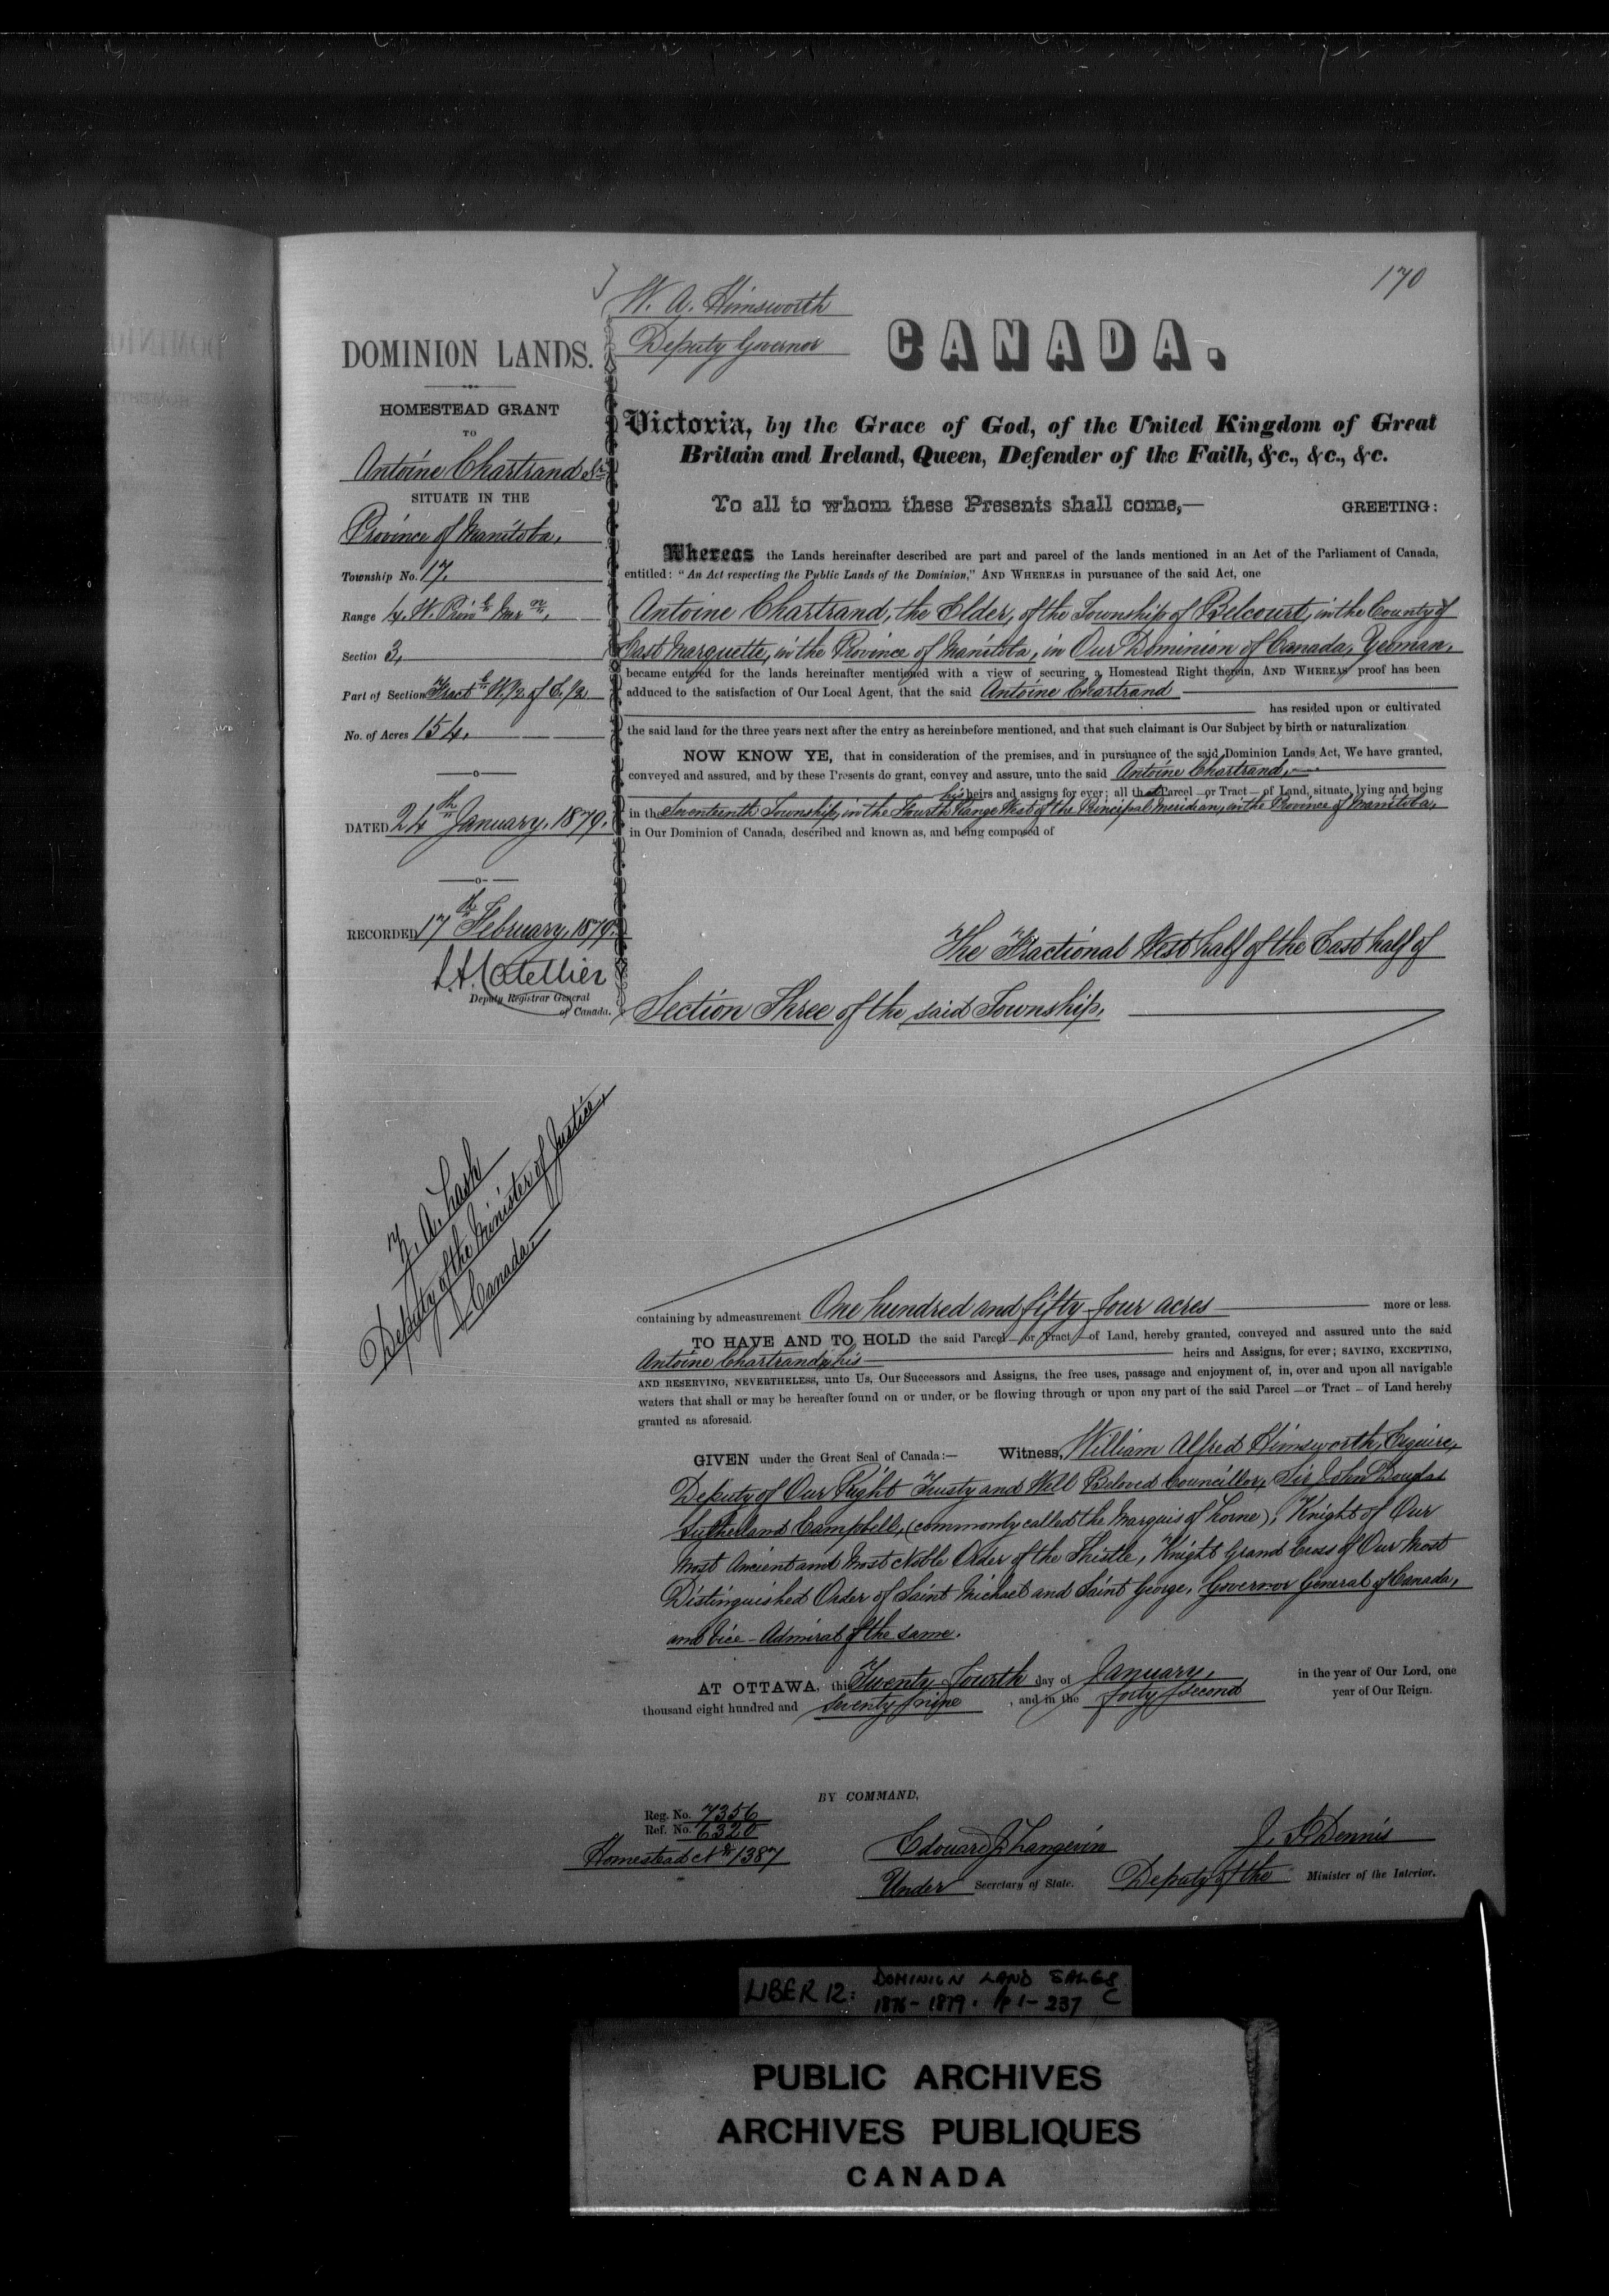 170
W. A. Himsworth
Deputy Governor
CANADA.
DOMINION LANDS.
HOMESTEAD GRANT
TO
Antoine Chartrand Sr.
SITUATE IN THE
Province of Manitoba,
Township No. 17,
Range 4, W. Prin.l Mer.n,
Section 3,
Part of Section Fract.l W. 1/2 of E. 1/2.
No. of Acres 154.
DATED 24th January, 1879.
RECORDED 17th February, 1879.
L. A. Catellier
Deputy Registrar General
of Canada.
Z. A. Lash
Deputy of the Minister of Justice,
Canada.
Victoria, by the Grace of God, of the United Kingdom of Great
Britain and Ireland, Queen, Defender of the Faith, &c., &c., &c.
To all to whom these Presents shall come,— GREETING:
Whereas the Lands hereinafter described are part and parcel of the lands mentioned in an Act of the Parliament of Canada,
entitled: "An Act respecting the Public Lands of the Dominion," AND WHEREAS in pursuance of the said Act, one
Antoine Chartrand, the Elder, of the Township of Belcourt, in the County of
East Marquette, in the Province of Manitoba, in Our Dominion of Canada, Yeoman,
became entered for the lands hereinafter mentioned with a view of securing a Homestead Right therein, AND WHEREAS proof has been
adduced to the satisfaction of Our Local Agent, that the said Antoine Chartrand
has resided upon or cultivated
the said land for the three years next after the entry as hereinbefore mentioned, and that such claimant is Our Subject by birth or naturalization
NOW KNOW YE, that in consideration of the premises, and in pursuance of the said Dominion Lands Act, We have granted,
conveyed and assured, and by these Presents do grant, convey and assure, unto the said Antoine Chartrand,
his heirs and assigns for ever; all that Parcel — or Tract — of Land, situate, lying and being
in the Seventeenth Township, in the Fourth Range West of the Principal Meridian, in the Province of Manitoba,
in Our Dominion of Canada, described and known as, and being composed of
The Fractional West half of the East half of
Section Three of the said Township.
containing by admeasurement One hundred and fifty four acres more or less.
TO HAVE AND TO HOLD the said Parcel — or Tract — of Land, hereby granted, conveyed and assured unto the said
Antoine Chartrand, his heirs and Assigns, for ever; SAVING, EXCEPTING,
AND RESERVING, NEVERTHELESS, unto Us, Our Successors and Assigns, the free uses, passage and enjoyment of, in, over and upon all navigable
waters that shall or may be hereafter found on or under, or be flowing through or upon any part of the said Parcel — or Tract — of Land hereby
granted as aforesaid.
GIVEN under the Great Seal of Canada:— Witness, William Alfred Himsworth, Esquire,
Deputy of Our Right Trusty and Well Beloved Councillor, Sir John Douglas
Sutherland Campbell, (commonly called the Marquis of Lorne), Knight of Our
Most Ancient and Most Noble Order of the Thistle, Knight Grand Cross of Our Most
Distinguished Order of Saint Michael and Saint George, Governor General of Canada,
and Vice-Admiral of the same.
AT OTTAWA, this Twenty Fourth day of January, in the year of Our Lord, one
thousand eight hundred and seventy nine, and in the forty second year of Our Reign.
BY COMMAND,
Reg. No. 7356
Ref. No. 6320
Homestead No. 1387
Edouard J. Langevin
Under Secretary of State.
J. S. Dennis
Deputy of the Minister of the Interior.
LIBER 12: DOMINION LAND SALES
1876-1879. pp 1-237 C
PUBLIC ARCHIVES
ARCHIVES PUBLIQUES
CANADA